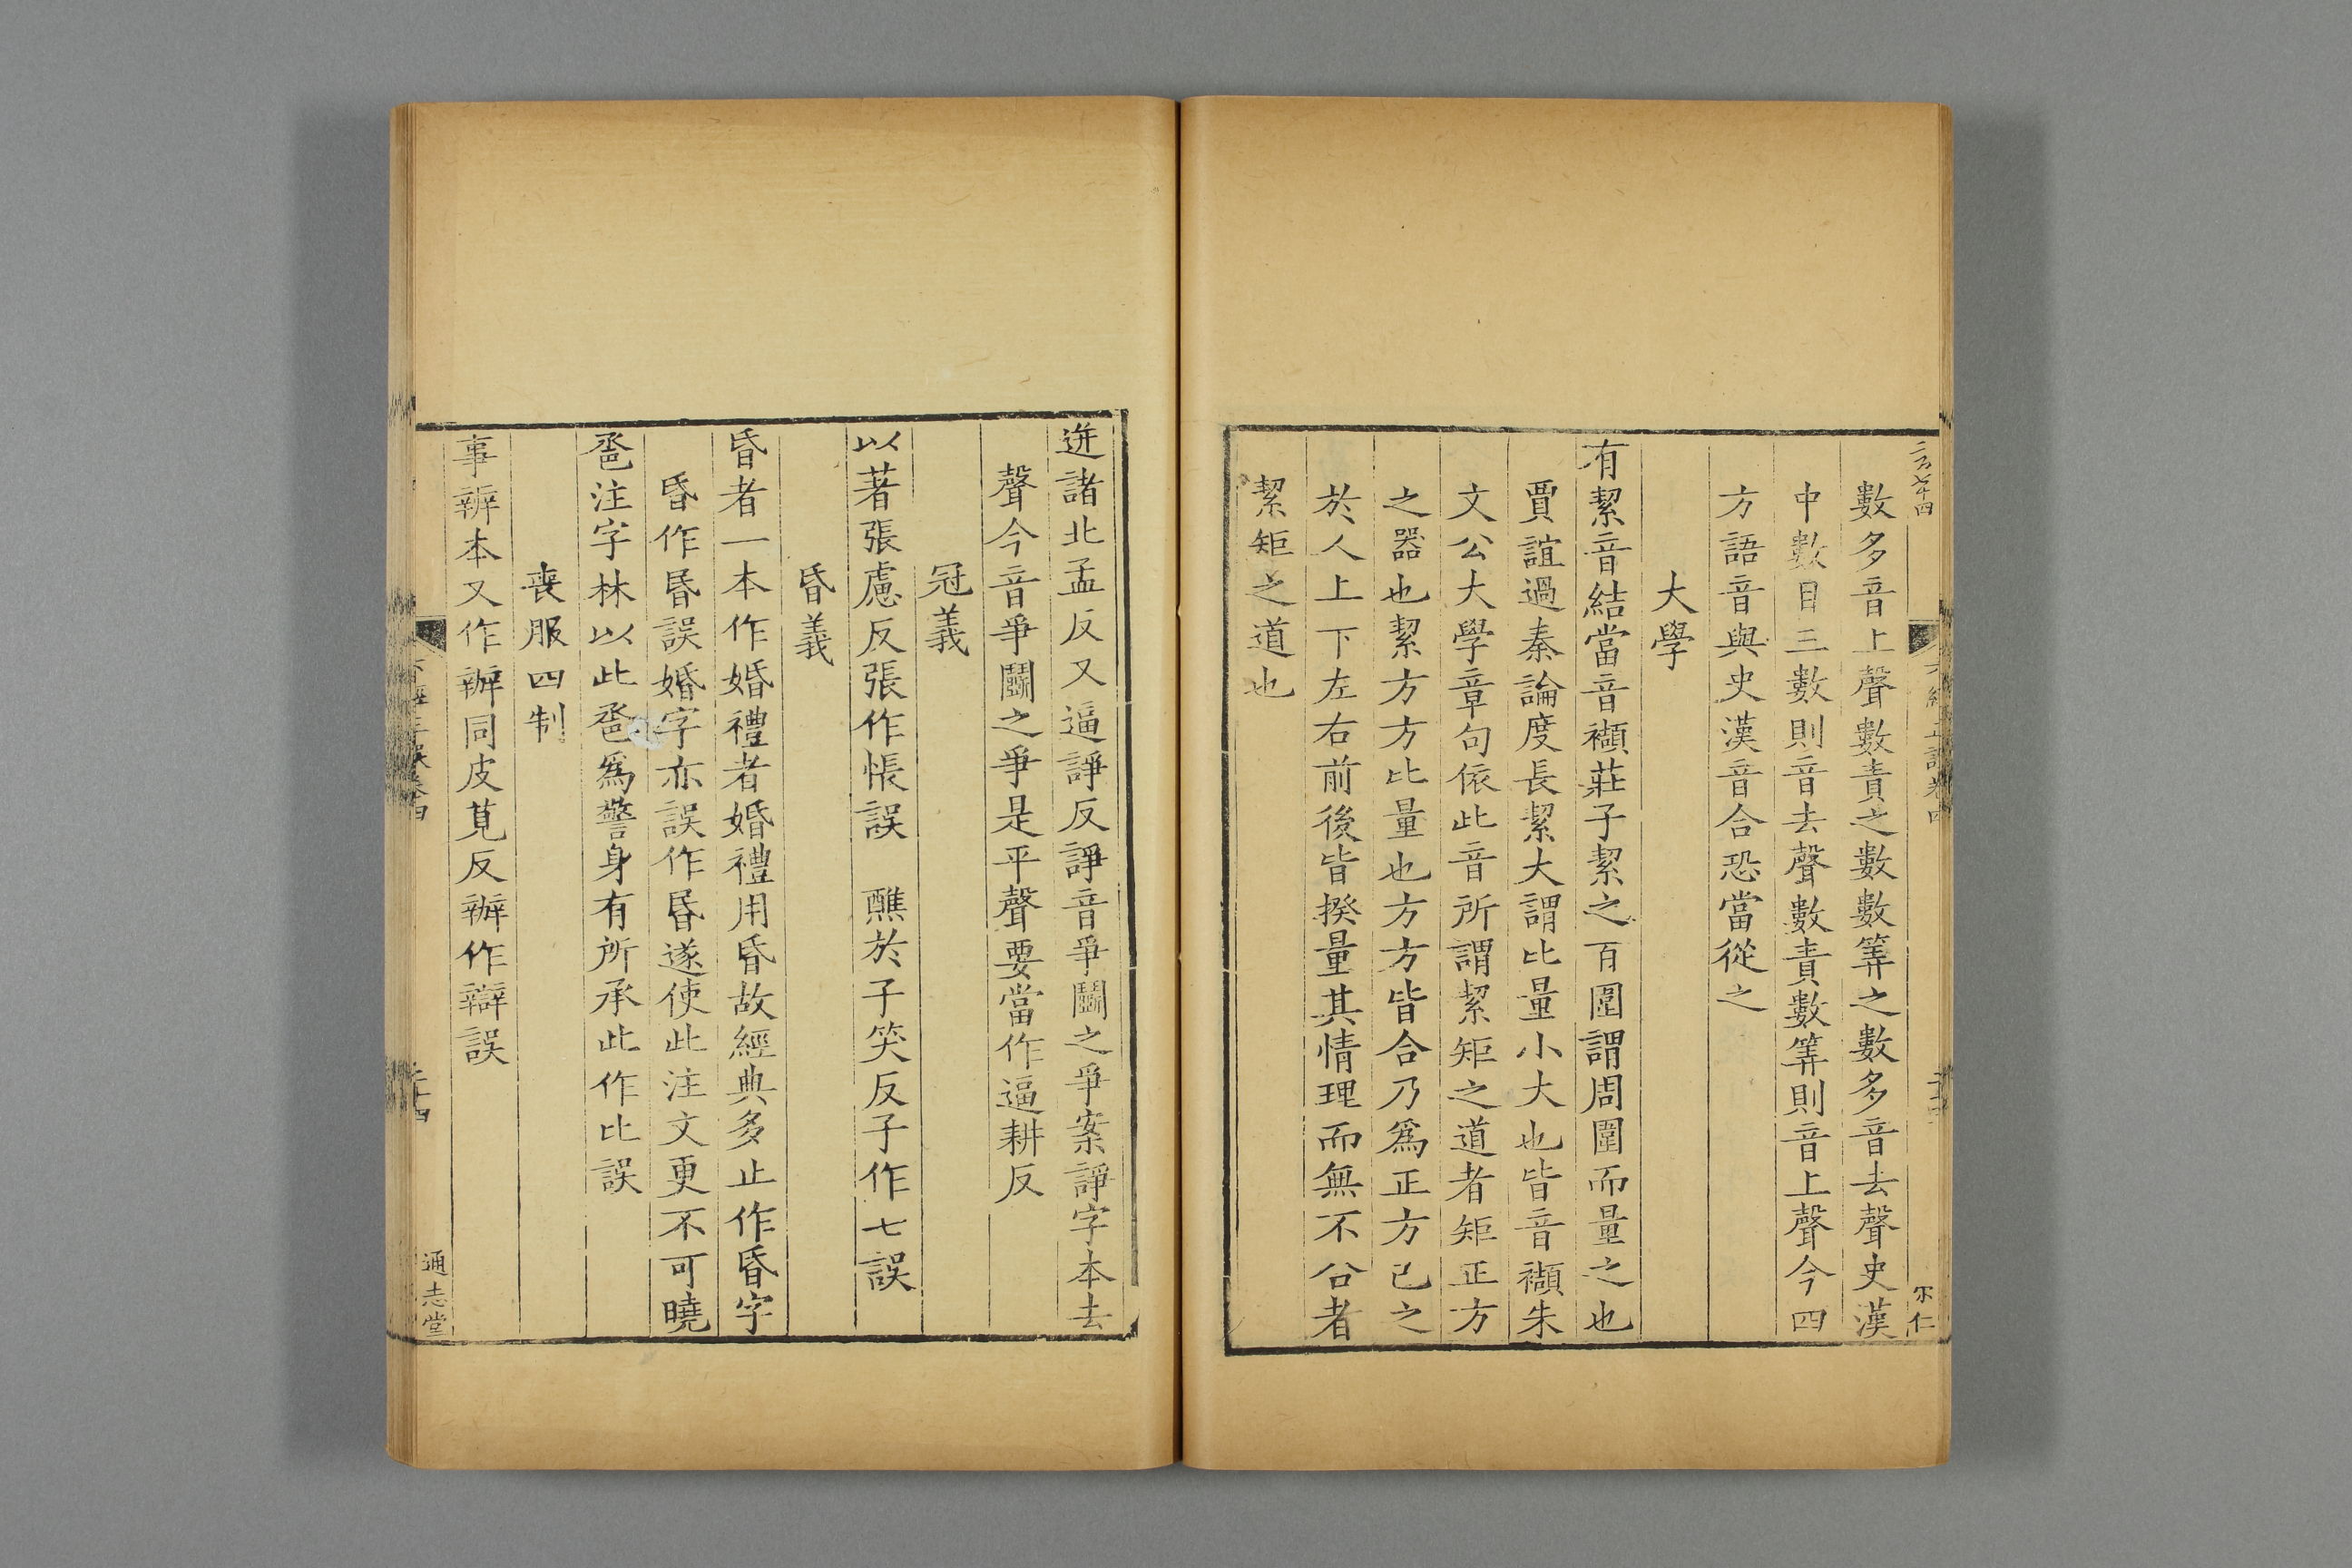 數多音上聲數責之數數筭之數多音去聲史漢
中數目三數則音去聲數責數筭則音上聲今四
方語音與史漢音合恐當從之
大學
有絜音結當音襭莊子絜之百圍謂周圍而量之也
賈誼過秦論度長絜大謂比量小大也皆音襭朱
文公大學章句依此音所謂絜矩之道者矩正方
之器也絜方方比量也方方皆合乃爲正方已之
於人上下左右前後皆揆量其情理而無不公者
絜矩之道也
迸諸北孟反又逼諍反諍音爭鬭之爭案諍字本去
聲今音爭鬭之爭是平聲要當作逼耕反
冠義
以著張慮反張作悵誤　醮於子笑反子作七誤
昏義
昏者一本作婚禮者婚禮用昏故經典多止作昏字
昏作昬誤婚字亦誤作昬遂使此注文更不可曉
巹注字林以此巹爲警身有所承此作比誤
喪服四制
事辨本又作辦同皮莧反辦作辯誤
通志堂